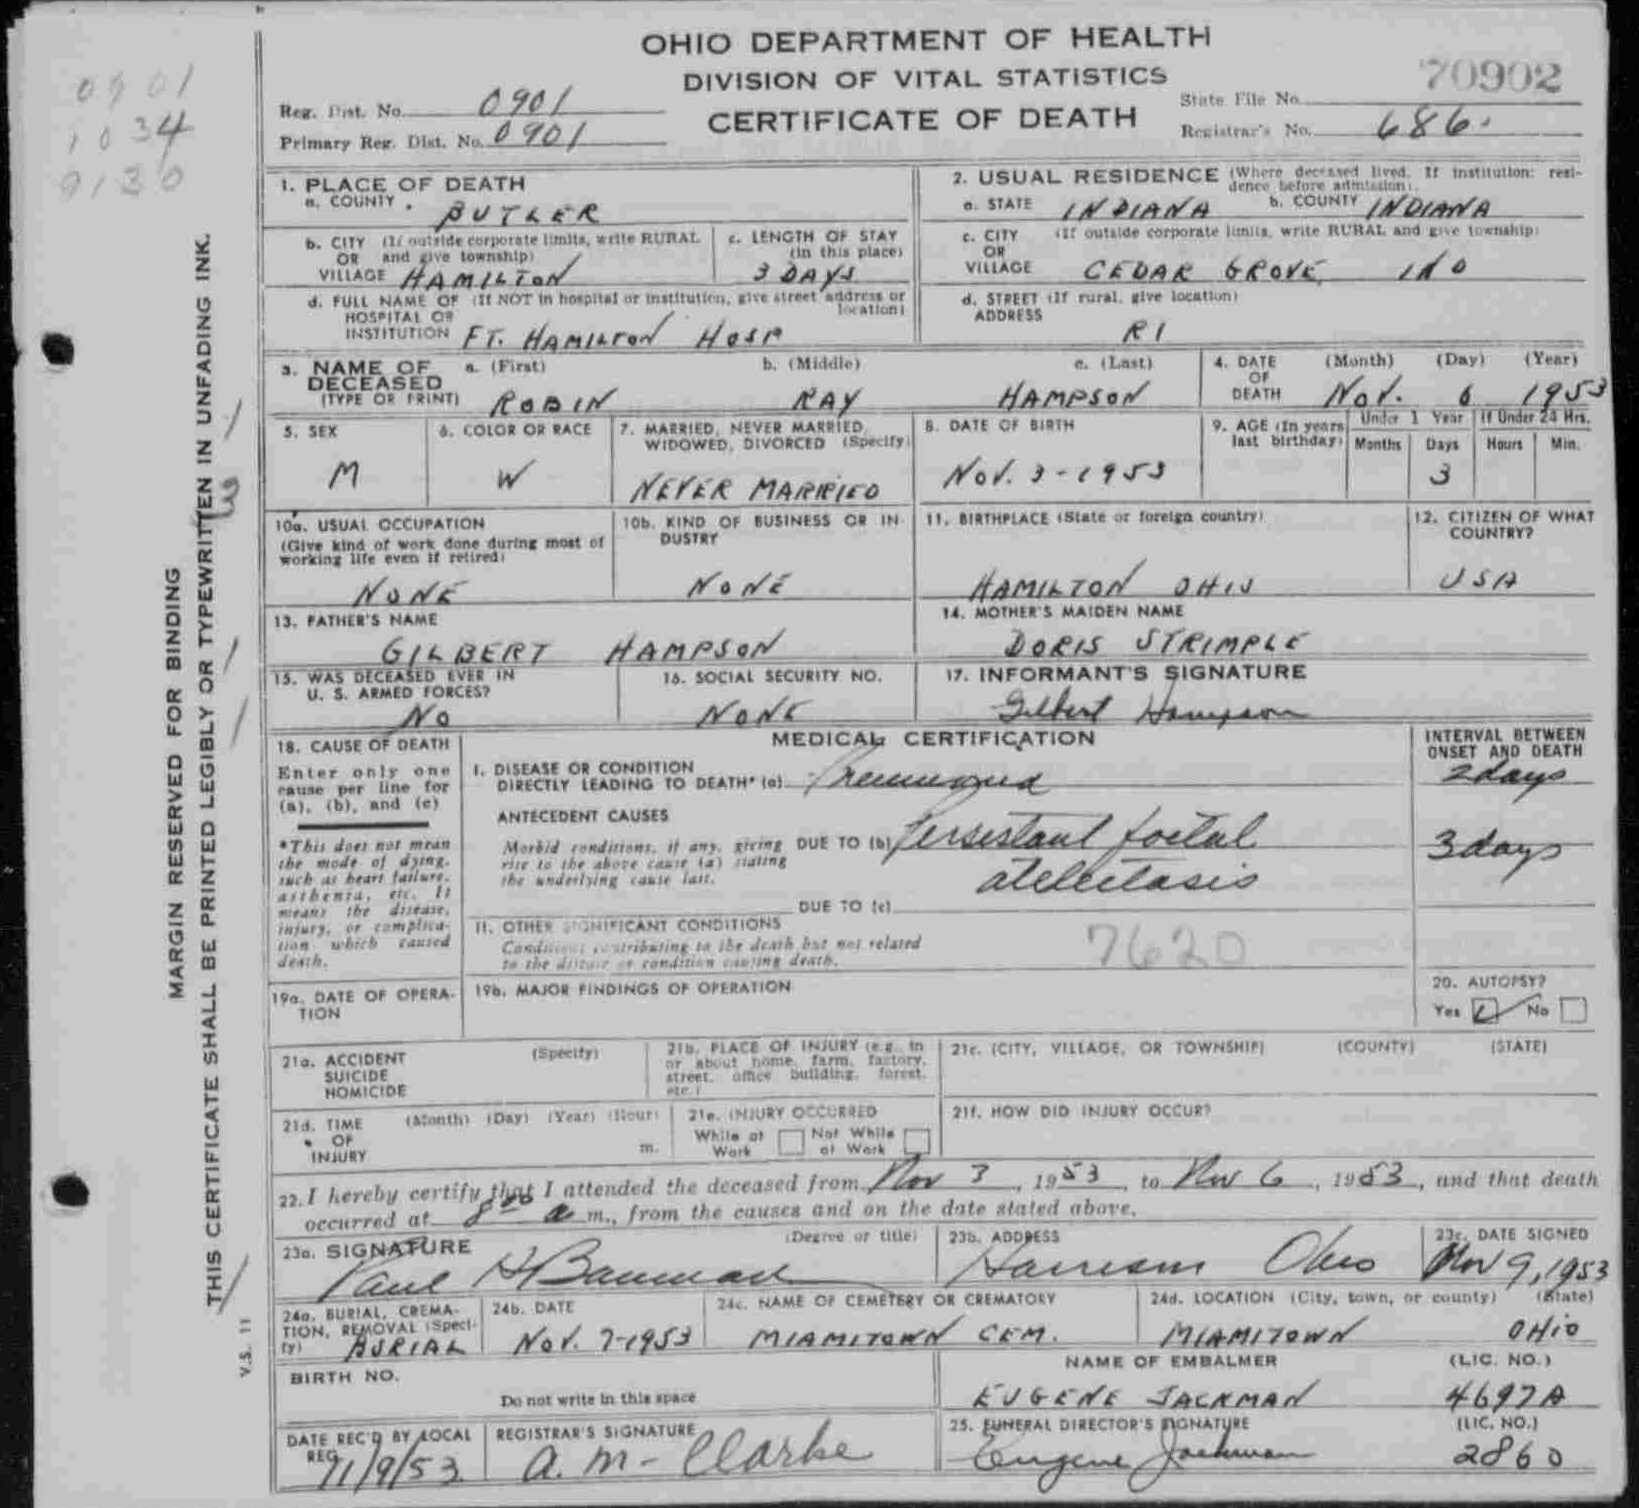 OHIO DEPARTMENT OF HEALTH
DIVISION OF VITAL STATISTICS
CERTIFICATE OF DEATH
70902
0901
1034
9130
Reg. Dist. No. 0901
Primary Reg. Dist. No. 0901
State File No.
Registrar's No. 686.
MARGIN RESERVED FOR BINDING
THIS CERTIFICATE SHALL BE PRINTED LEGIBLY OR TYPEWRITTEN IN UNFADING INK.
V.S. 11
1. PLACE OF DEATH
a. COUNTY BUTLER
b. CITY (If outside corporate limits, write RURAL
OR and give township)
VILLAGE HAMILTON
c. LENGTH OF STAY
(in this place)
3 DAYS
d. FULL NAME OF (If NOT in hospital or institution, give street address or
location)
HOSPITAL OR
INSTITUTION FT. HAMILTON HOSP
2. USUAL RESIDENCE (Where deceased lived. If institution: resi-
dence before admission).
a. STATE INDIANA b. COUNTY INDIANA
c. CITY (If outside corporate limits, write RURAL and give township)
OR
VILLAGE CEDAR GROVE IND
d. STREET (If rural, give location)
ADDRESS R1
3. NAME OF DECEASED
(TYPE OR PRINT)
a. (First) b. (Middle) c. (Last)
ROBIN RAY HAMPSON
4. DATE OF DEATH (Month) (Day) (Year)
Nov. 6 1953
5. SEX
M
6. COLOR OR RACE
W
7. MARRIED, NEVER MARRIED,
WIDOWED, DIVORCED (Specify)
NEVER MARRIED
8. DATE OF BIRTH
Nov. 3-1953
9. AGE (In years
last birthday)
Under 1 Year If Under 24 Hrs.
Months Days Hours Min.
3
10a. USUAL OCCUPATION
(Give kind of work done during most of
working life even if retired)
NONE
10b. KIND OF BUSINESS OR IN-
DUSTRY
NONE
11. BIRTHPLACE (State or foreign country)
HAMILTON OHIO
12. CITIZEN OF WHAT
COUNTRY?
USA
13. FATHER'S NAME
GILBERT HAMPSON
14. MOTHER'S MAIDEN NAME
DORIS STRIMPLE
15. WAS DECEASED EVER IN
U. S. ARMED FORCES?
NO
16. SOCIAL SECURITY NO.
NONE
17. INFORMANT'S SIGNATURE
Gilbert Hampson
18. CAUSE OF DEATH
Enter only one
cause per line for
(a), (b), and (c)
*This does not mean
the mode of dying,
such as heart failure,
asthenia, etc. It
means the disease,
injury, or complica-
tion which caused
death.
MEDICAL CERTIFICATION
INTERVAL BETWEEN
ONSET AND DEATH
I. DISEASE OR CONDITION
DIRECTLY LEADING TO DEATH* (a) Pneumonia
2 days
ANTECEDENT CAUSES
Morbid conditions, if any, giving
rise to the above cause (a) stating
the underlying cause last.
DUE TO (b) Persistant foetal
atelectasis
3 days
DUE TO (c)
II. OTHER SIGNIFICANT CONDITIONS
Conditions contributing to the death but not related
to the disease or condition causing death.
7620
19a. DATE OF OPERA-
TION
19b. MAJOR FINDINGS OF OPERATION
20. AUTOPSY?
Yes No
21a. ACCIDENT (Specify)
SUICIDE
HOMICIDE
21b. PLACE OF INJURY (e.g., in
or about home, farm, factory,
street, office building, forest,
etc.)
21c. (CITY, VILLAGE, OR TOWNSHIP) (COUNTY) (STATE)
21d. TIME (Month) (Day) (Year) (Hour)
OF
INJURY m.
21e. INJURY OCCURRED
While at Work Not While at Work
21f. HOW DID INJURY OCCUR?
22. I hereby certify that I attended the deceased from Nov 3, 1953, to Nov 6, 1953, and that death
occurred at 8 00 a m., from the causes and on the date stated above.
23a. SIGNATURE (Degree or title)
Paul
23b. ADDRESS
Harrison Ohio
23c. DATE SIGNED
Nov 9, 1953
24a. BURIAL, CREMA-
TION, REMOVAL (Speci-
fy) BURIAL
24b. DATE
Nov. 7-1953
24c. NAME OF CEMETERY OR CREMATORY
MIAMITOWN CEM.
24d. LOCATION (City, town, or county) (State)
MIAMITOWN OHIO
BIRTH NO.
Do not write in this space
NAME OF EMBALMER (LIC. NO.)
EUGENE JACKMAN 4697A
DATE REC'D BY LOCAL
REG. 11/9/53
REGISTRAR'S SIGNATURE
A. M. Clarke
25. FUNERAL DIRECTOR'S SIGNATURE (LIC. NO.)
Eugene Jackman 2860